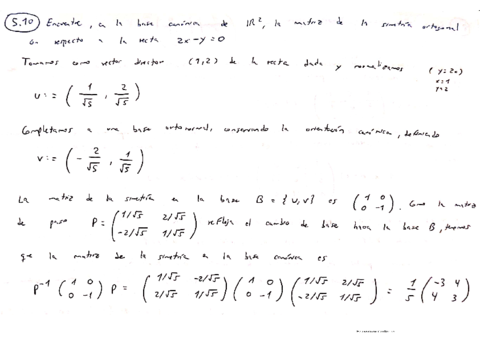 5.10 Encuentre, en la base canónica de ℝ², la matriz de la simetría ortogonal
con respecto a la recta 2x-y=0
Tomamos como vector director (1,2) de la recta dada y normalizamos (y=2x)
x=1
y=2
u:= (1/√5, 2/√5)
Completamos a una base ortonormal, conservando la orientación canónica, definiendo
v:= (-2/√5, 1/√5)
La matriz de la simetría en la base B = {u,v} es (1 0 / 0 -1). Como la matriz
de paso P = (1/√5 2/√5 / -2/√5 1/√5) refleja el cambio de base hacia la base B, tenemos
que la matriz de la simetría en la base canónica es
P⁻¹ (1 0 / 0 -1) P = (1/√5 -2/√5 / 2/√5 1/√5) (1 0 / 0 -1) (1/√5 2/√5 / -2/√5 1/√5) = 1/5 (-3 4 / 4 3)